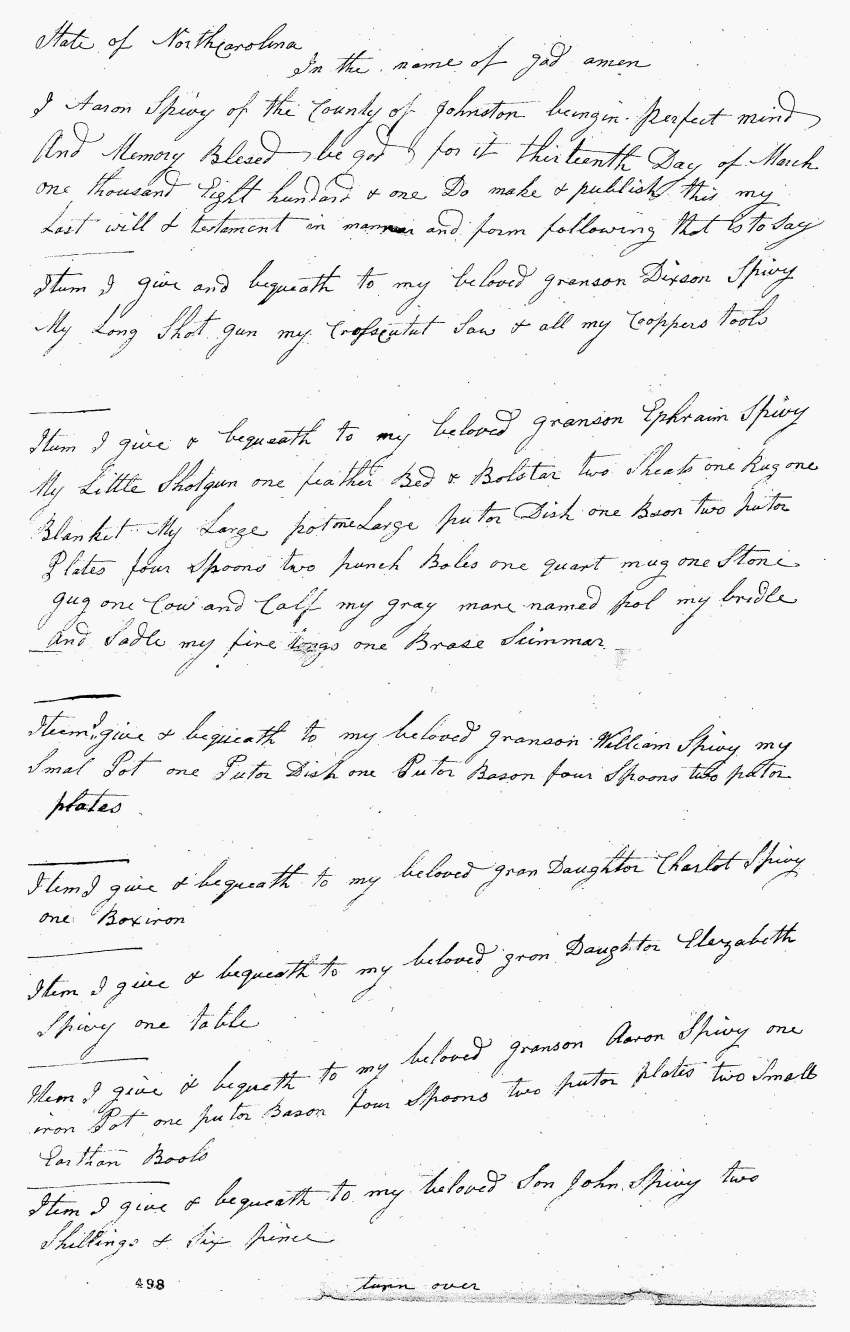 State of NorthCarolina
In the name of god amen
I Aaron Spivy of the County of Johnston beingin perfect mind
And Memory Blesed be god for it thirteenth Day of March
one thousand Eight hundard & one Do make & publish this my
Last will & testament in mannar and form following that is to say
Itum I give and bequeath to my beloved granson Dixson Spivy
My Long Shot gun my Crosscutut Saw & all my Cooppers tools
Itum I give & bequeath to my beloved granson Ephraim Spivy
My Little Shotgun one feather Bed & Bolstar two Sheats one Rug one
Blanket My Large pot one Large putor Dish one Bason two putor
Plates four Spoons two punch Boles one quart mug one Stone
gug one Cow and Calf my gray mare named pol my bridle
and Sadle my fire tongs one Brase Simmar
Iteem I give & bequeath to my beloved granson William Spivy my
Smal Pot one Putor Dish one Putor Bason four Spoons two putor
plates
Item I give & bequeath to my beloved gran Daughtor Charlot Spivy
one Boxiron
Item I give & bequeath to my beloved gron Daughtor Elezabeth
Spivy one table
Item I give & bequeth to my beloved granson Aaron Spivy one
iron Pot one putor Bason four Spoons two putor plates two Small
Earthan Bools
Item I give & bequeath to my beloved Son John Spivy two
Shillings & Six pince
498
turn over